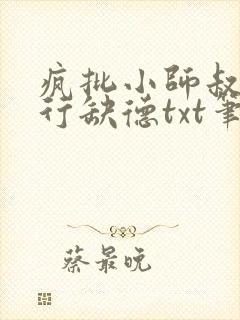 疯批小师叔
行缺德txt笔
蔡最晚